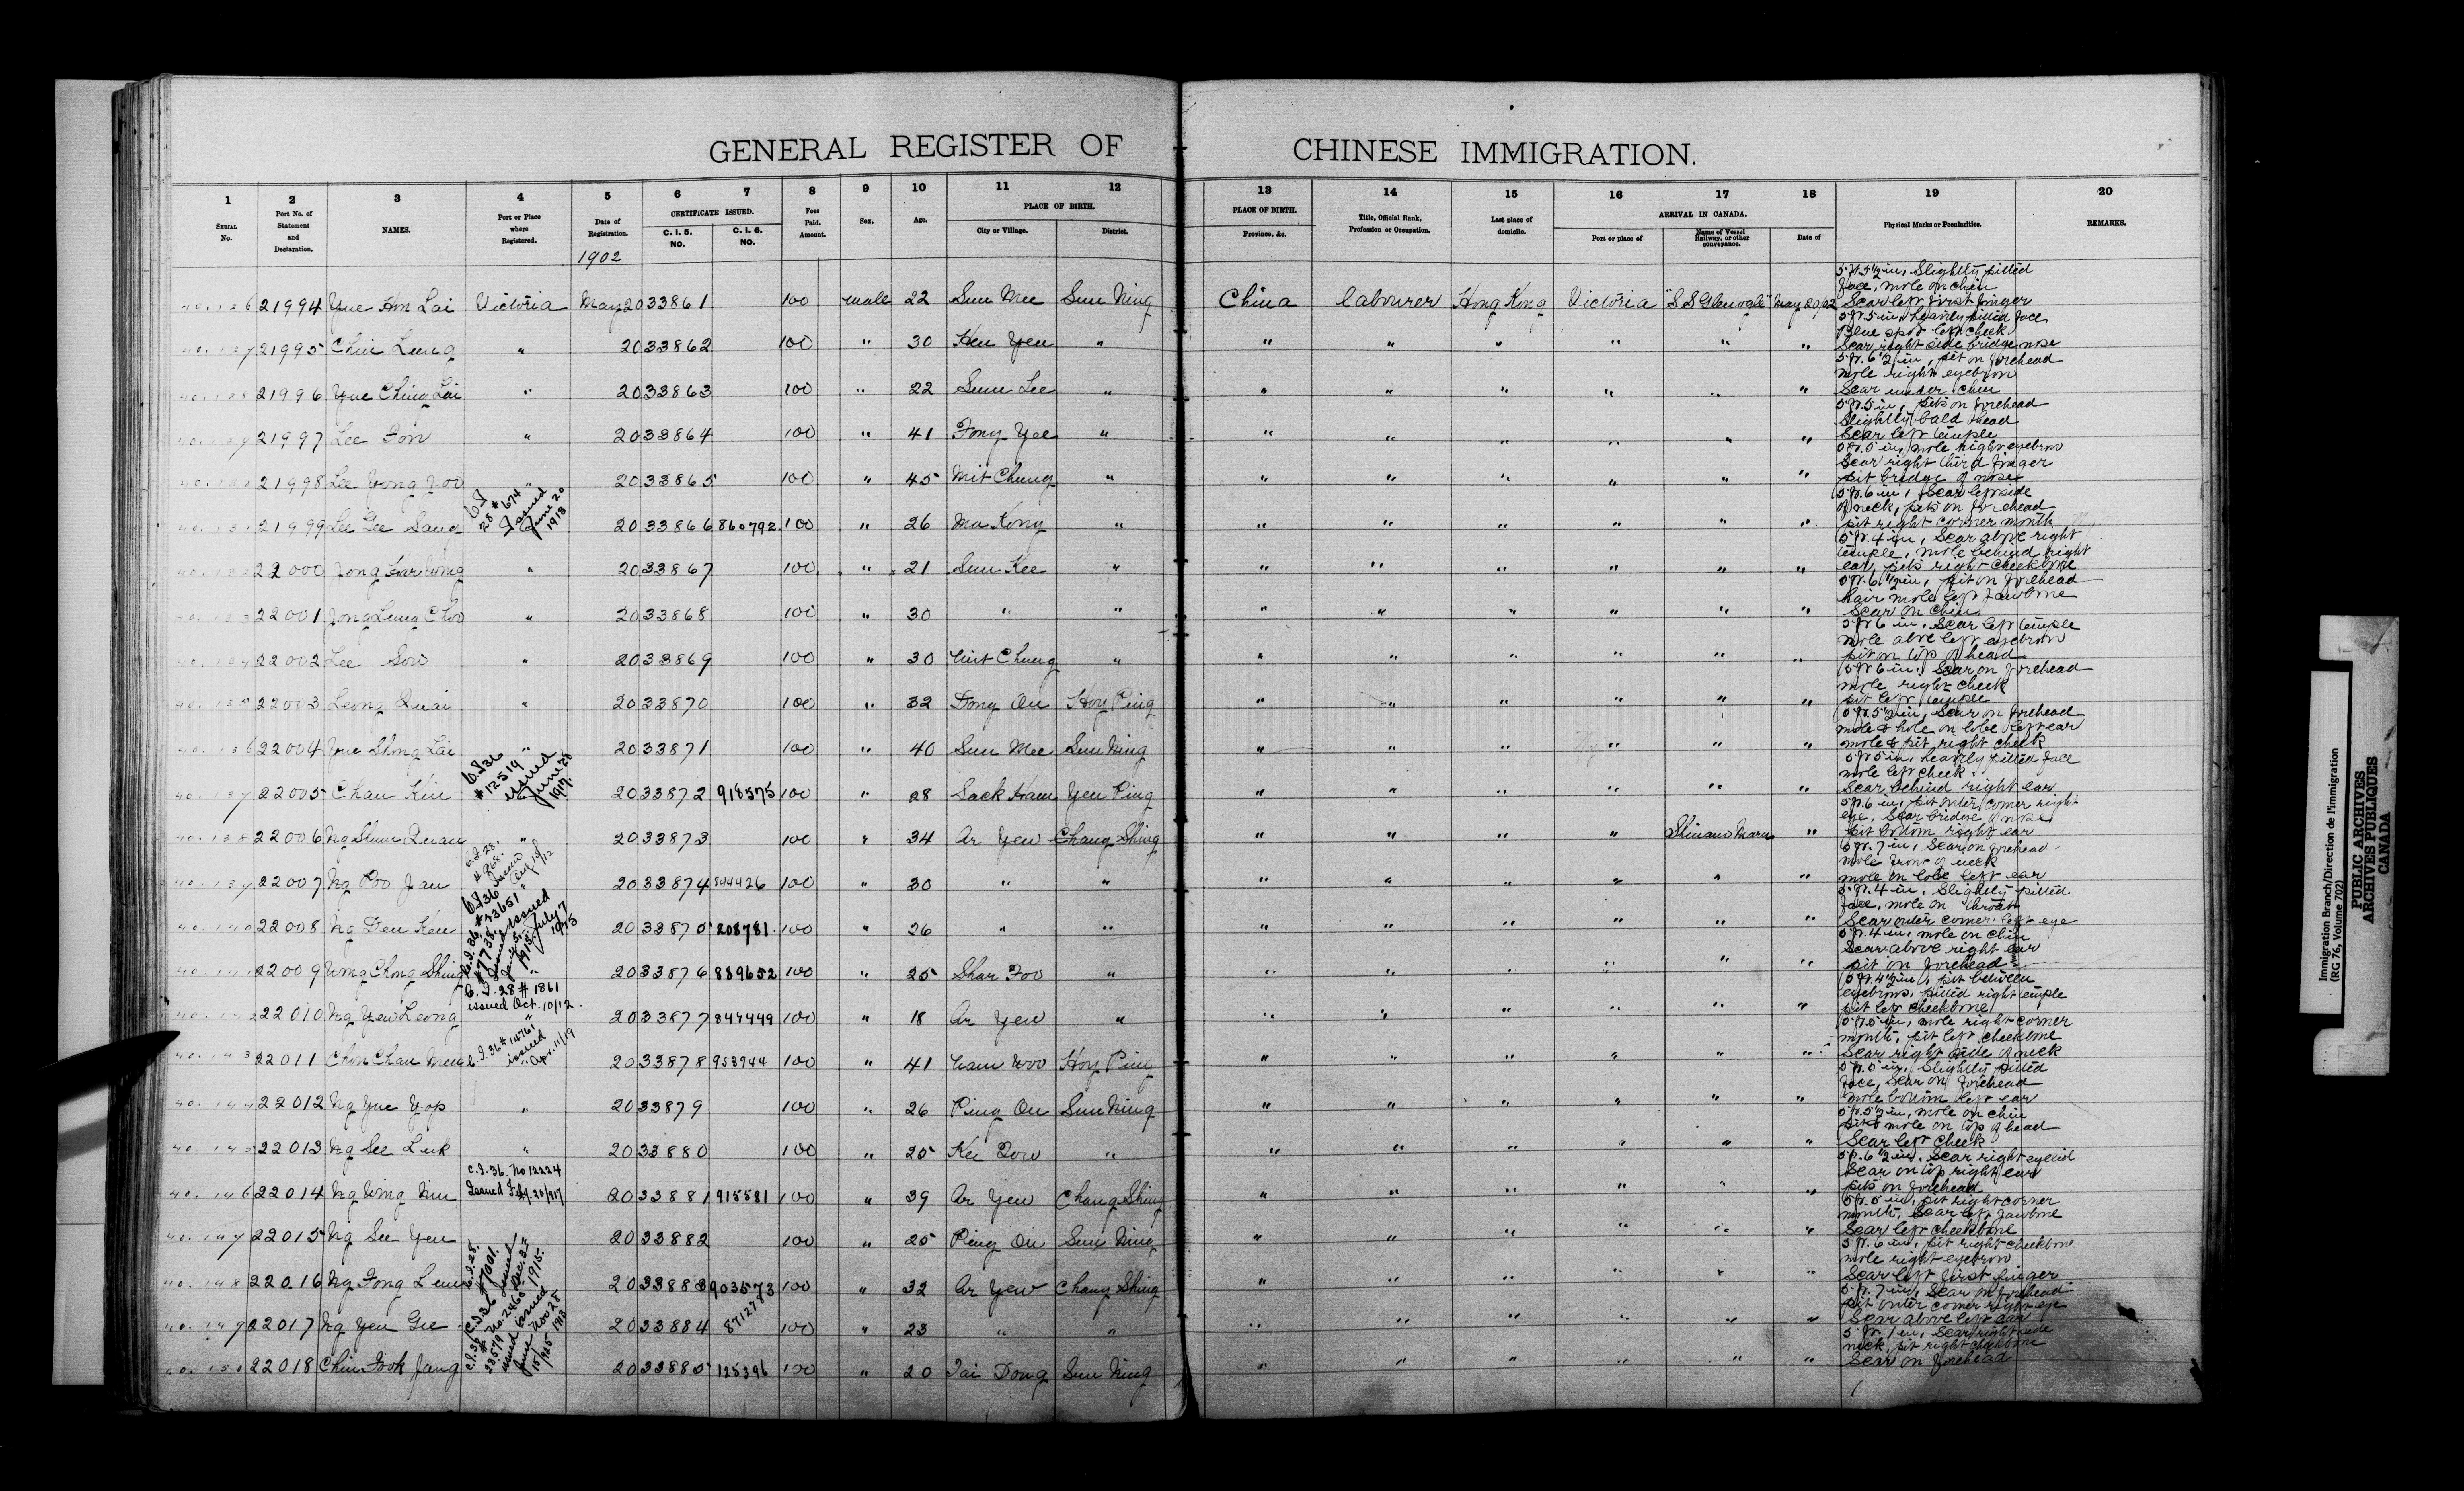 GENERAL REGISTER OF CHINESE IMMIGRATION.
1 2 3 4 5 6 7 8 9 10 11 12 13 14 15 16 17 18 19 20
SERIAL No. Port No. of Statement and Declaration. NAMES. Port or Place where Registered. Date of Registration. CERTIFICATE ISSUED. C. I. 5. NO. C. I. 6. NO. Fees Paid. Amount. Sex. Age. PLACE OF BIRTH. City or Village. District. PLACE OF BIRTH. Province, &c. Title, Official Rank, Profession or Occupation. Last place of domicile. ARRIVAL IN CANADA. Port or place of Name of Vessel Railway, or other conveyance. Date of Physical Marks or Peculiarities. REMARKS.
1902
21994 Yue Hm Lai Victoria May 20 33861 100 male 22 Sun Mee Sun Ning China labourer Hong Kong Victoria "S.S Glenogle" May 20/02 5 ft. 5 1/2 in, Slightly pitted
face, mole on chin
Scar left first finger
21995 Chin Leung " 20 33862 100 " 30 Hen Yen " " " " " " " 5 ft. 5 in, heavily pitted face
Blue spot left cheek
Scar right side bridge nose
21996 Yue Ching Lai " 20 33863 100 " 22 Sun Lee " " " " " " " 5 ft. 6 1/2 in, pit on forehead
mole right eyebrow
Scar under chin
21997 Lee Fon " 20 33864 100 " 41 Fong Yee " " " " " " " 5 ft. 5 in, pits on forehead
Slightly bald head
Scar left temple
21998 Lee Yong Yoo " 20 33865 100 " 45 Mit Chung " " " " " " " 5 ft. 5 in, mole right eyebrow
Scar right third finger
pit bridge of nose
C I 28 #674 Issued June 20 1913
21999 Lee Gee Sang 20 33866 860792 100 " 26 Ma Kong " " " " " " " 5 ft. 6 in, Scar left side
of neck, pits on forehead
pit right corner mouth
22000 Jong Far Wing " 20 33867 100 " 21 Sun Kee " " " " " " " 5 ft. 4 in, Scar above right
temple, mole behind right
ear, pits right cheekbone
22001 Jong Leung Choo " 20 33868 100 " 30 " " " " " " " " 5 ft. 6 1/2 in, pit on forehead
hair mole left jawbone
Scar on chin
22002 Lee Sow " 20 33869 100 " 30 Mit Chung " " " " " " " 5 ft 6 in, Scar left temple
mole above left eyebrow
pit on top of head
22003 Leong Quai " 20 33870 100 " 32 Dong On Hoy Ping " " " " " " 5 ft 6 in, Scar on forehead
mole right cheek
pit left temple
22004 Yue Shong Lai " 20 33871 100 " 40 Sun Mee Sun Ning " " " " " " 5 ft. 5 1/2 in, Scar on forehead
mole & hole on lobe left ear
mole & pit right cheek
C I 36 #12519 issued June 28 1917.
22005 Chan Kin 20 33872 918575 100 " 28 Sack Ham Yen Ping " " " " " " 5 ft 5 in, heavily pitted face
mole left cheek
Scar behind right ear
22006 Ng Shun Quan " 20 33873 100 " 34 Ar Yew Chang Shing " " " " Shinano Maru " 5 ft. 6 in, pit outer corner right
eye, Scar bridge of nose
pit bottom right ear
22007 Ng Poo Jan 20 33874 844426 100 " 30 " " " " " " " " 5 ft. 7 in, Scar on forehead
mole front of neck
mole on lobe left ear
C.I. 36 #43651 Issued July 7 1925
22008 Ng Fen Ken 20 33875 208781 100 " 26 " " " " " " " " 5 ft. 4 in, Slightly pitted
face, mole on throat
Scar outer corner left eye
22009 Wong Chong Shing " 20 33876 889652 100 " 25 Shar Foo " " " " " " " 5 ft. 4 in, mole on chin
Scar above right ear
pit on forehead
C. I. 28 # 1861
issued Oct. 10/12.
22010 Ng Yew Leong " 20 33877 847449 100 " 18 Ar Yew " " " " " " " 5 ft. 4 1/2 in, pit between
eyebrows, pitted right temple
pit left cheekbone
C.I. 36 # 14761 issued Apr. 11/19
22011 Chon Chan Men " 20 33878 953744 100 " 41 Nam Woo Hoy Ping " " " " " " 5 ft. 5 in, mole right corner
mouth, pit left cheekbone
Scar right side of neck
22012 Ng Yue Yop " 20 33879 100 " 26 Ping On Sun Ning " " " " " " 5 ft. 5 in, Slightly pitted
face, Scar on forehead
mole bottom left ear
22013 Ng See Luk " 20 33880 100 " 25 Kee Dow " " " " " " " 5 ft. 5 1/2 in, mole on chin
pit & mole on top of head
Scar left cheek
C. I. 36. No 12224
Issued Feby. 20/917
22014 Ng Wing Nin 20 33881 915581 100 " 39 Ar Yew Chang Shing " " " " " " 5 ft. 6 1/2 in, Scar right eyelid
Scar on top right ear
pits on forehead
22015 Ng See Yen 20 33882 100 " 25 Ping On Sun Ning " " " " " " 5 ft. 5 in, pit right corner
mouth, Scar left jawbone
Scar left cheekbone
22016 Ng Fong Leun 20 33883 903573 100 " 32 Ar Yew Chang Shing " " " " " " 5 ft. 6 in, pit right cheekbone
mole right eyebrow
Scar left first finger
22017 Ng Yen Gee 20 33884 871278 100 " 23 " " " " " " " " 5 ft. 7 in, Scar on forehead
pit outer corner right eye
Scar above left ear
22018 Chin Fook Jang 20 33885 125396 100 " 20 Tai Dong Sun Ning " " " " " " 5 ft. 1 in, Scar right side
neck, pit right cheekbone
Scar on forehead
Immigration Branch/Direction de l'immigration
(RG 76, Volume 702)
PUBLIC ARCHIVES
ARCHIVES PUBLIQUES
CANADA